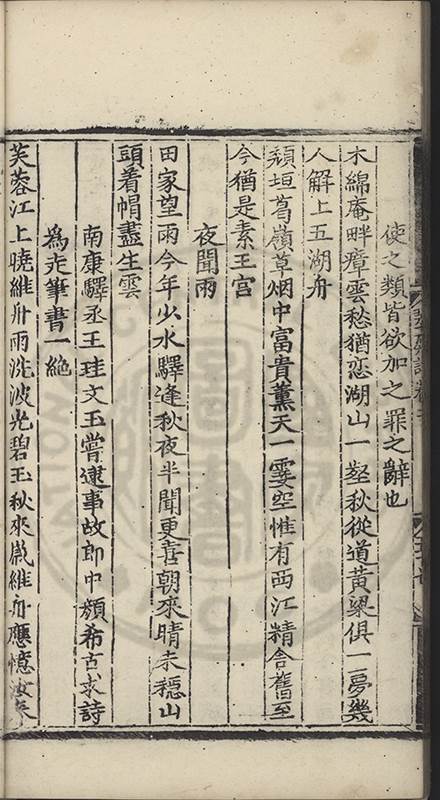 使之類皆欲加之罪之辭也
木綿庵畔瘴雲愁猶恋湖山一壑秋從道黃粱俱一夢幾
人解上五湖舟
頹垣葛嶺草烟中富貴薰天一霎空惟有西江精舎舊至
今猶是素王宮
夜聞雨
田家望雨今年少水驛逢秋夜半聞更喜朝來晴未穏山
頭着帽盡生雲
南康驛丞王珪文玉嘗逮事故郎中顏希古求詩
為走筆書一絶
芙蓉江上曉維舟雨洗波光碧玉秋來歲維舟應憶汝